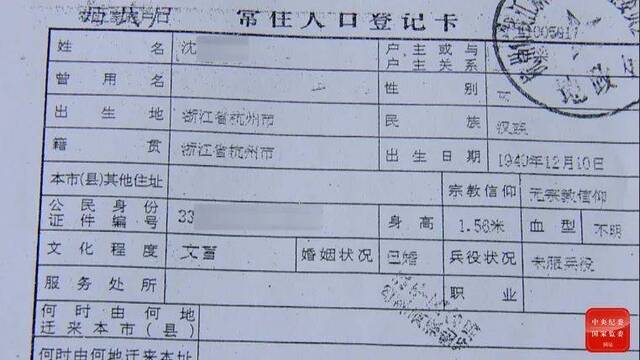 常住人口登记卡
姓名 沈 户主或与户主关系
曾用名 性别 女
出生地 浙江省杭州市 民族 汉族
籍贯 浙江省杭州市 出生日期 1940年12月10日
本市(县)其他住址 宗教信仰 无宗教信仰
公民身份证件编号 33 身高 1.56米 血型 不明
文化程度 文盲 婚姻状况 已婚 兵役状况 未服兵役
服务处所 职业
何时由何地迁来本市(县)
何时由何地迁来本址
中央纪委
国家监委
网站